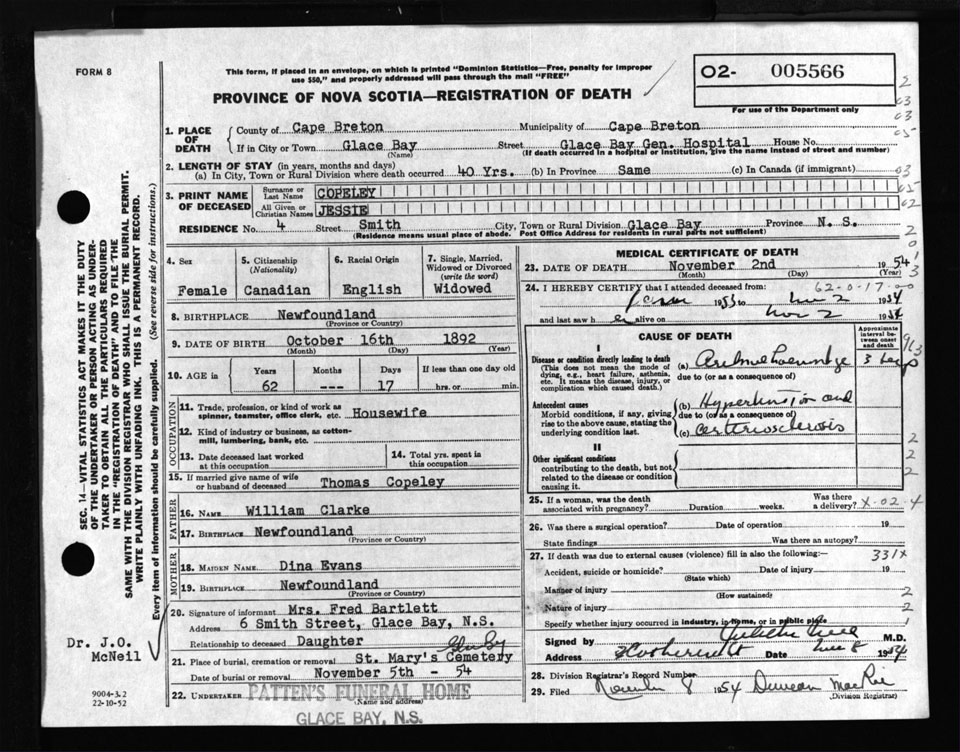 FORM 8
This form, if placed in an envelope, on which is printed "Dominion Statistics—Free, penalty for improper
use $50," and properly addressed will pass through the mail "FREE"
O2- 005566
For use of the Department only
PROVINCE OF NOVA SCOTIA—REGISTRATION OF DEATH
1. PLACE OF DEATH
County of Cape Breton Municipality of Cape Breton
If in City or Town Glace Bay Street Glace Bay Gen. Hospital House No.
(Name) (If death occurred in a hospital or institution, give the name instead of street and number)
2. LENGTH OF STAY (in years, months and days)
(a) In City, Town or Rural Division where death occurred 40 Yrs. (b) In Province Same (c) In Canada (if immigrant)
3. PRINT NAME OF DECEASED
Surname or Last Name COPELEY
All Given or Christian Names JESSIE
RESIDENCE No. 4 Street Smith City, Town or Rural Division Glace Bay Province N. S.
(Residence means usual place of abode. Post Office Address for residents in rural parts not sufficient)
4. Sex
Female
5. Citizenship (Nationality)
Canadian
6. Racial Origin
English
7. Single, Married, Widowed or Divorced (write the word)
Widowed
8. BIRTHPLACE Newfoundland
(Province or Country)
9. DATE OF BIRTH October 16th 1892
(Month) (Day) (Year)
10. AGE in
Years Months Days If less than one day old
62 --- 17 hrs. or min.
OCCUPATION
11. Trade, profession, or kind of work as spinner, teamster, office clerk, etc. Housewife
12. Kind of industry or business, as cotton-mill, lumbering, bank, etc.
13. Date deceased last worked at this occupation
14. Total yrs. spent in this occupation
15. If married give name of wife or husband of deceased Thomas Copeley
FATHER
16. NAME William Clarke
17. BIRTHPLACE Newfoundland
(Province or Country)
MOTHER
18. MAIDEN NAME Dina Evans
19. BIRTHPLACE Newfoundland
(Province or Country)
20. Signature of informant Mrs. Fred Bartlett
Address 6 Smith Street, Glace Bay, N.S.
Relationship to deceased Daughter
21. Place of burial, cremation or removal St. Mary's Cemetery
Date of burial or removal November 5th - 54
22. UNDERTAKER PATTEN'S FUNERAL HOME
(Name and address)
GLACE BAY, N.S.
MEDICAL CERTIFICATE OF DEATH
23. DATE OF DEATH November 2nd 1954
(Month) (Day) (Year)
24. I HEREBY CERTIFY that I attended deceased from:
1953 to Nov 2 1954
and last saw h er alive on Nov 2 1954
CAUSE OF DEATH
Approximate interval between onset and death
I
Disease or condition directly leading to death
(This does not mean the mode of dying, e.g., heart failure, asthenia, etc. It means the disease, injury, or complication which caused death.)
(a)
due to (or as a consequence of)
3
Antecedent causes
Morbid conditions, if any, giving rise to the above cause, stating the underlying condition last.
(b) Hypertension and
due to (or as a consequence of)
(c) arteriosclerosis
II
Other significant conditions
contributing to the death, but not related to the disease or condition causing it.
25. If a woman, was the death associated with pregnancy? Duration weeks. Was there a delivery? X-02-4
26. Was there a surgical operation? Date of operation 19
State findings Was there an autopsy?
27. If death was due to external causes (violence) fill in also the following:— 331X
Accident, suicide or homicide? Date of injury 19
(State which)
Manner of injury
(How sustained)
Nature of injury
Specify whether injury occurred in industry, in home, or in public place
Signed by M.D.
Address Date Nov 8 1954
28. Division Registrar's Record Number
29. Filed November 8 1954 Duncan MacRae
(Division Registrar)
SEC. 14—VITAL STATISTICS ACT MAKES IT THE DUTY
OF THE UNDERTAKER OR PERSON ACTING AS UNDER-
TAKER TO OBTAIN ALL THE PARTICULARS REQUIRED
IN THE "REGISTRATION OF DEATH" AND TO FILE THE
SAME WITH THE DIVISION REGISTRAR WHO SHALL ISSUE THE BURIAL PERMIT.
WRITE PLAINLY WITH UNFADING INK. THIS IS A PERMANENT RECORD.
Every item of Information should be carefully supplied. (See reverse side for instructions.)
Dr. J.O.
McNeil
9004-3.2
22-10-52